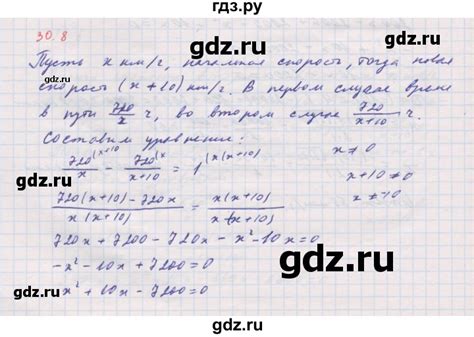 гдз.ру
30.8
gdz.ru
gdz.ru
Пусть x км/г, начальная скорость, тогда новая
скорость (x+10) км/г. В первом случае время
в пути 720/x ч, во втором случае 720/x+10 ч.
Составим уравнение:
gdz.ru
gdz.ru
720/x (x+10 - 720/x+10 (x = 1 (x(x+10) x≠0
x+10≠0
720(x+10)-720x/x(x+10) = x(x+10)/x(x+10) x≠-10
720x+7200-720x-x²-10x=0
-x²-10x+7200=0
x²+10x-7200=0
gdz.ru
gdz.ru